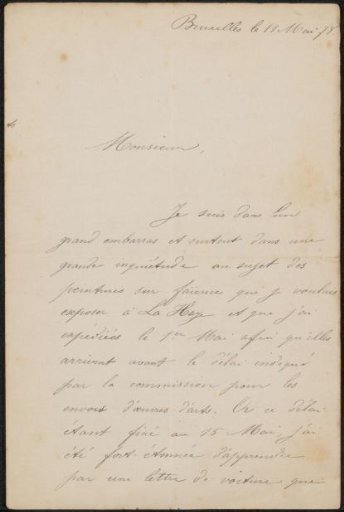 Bruxelles le 18 Mai 78
Monsieur,
Je suis dans un
grand embarras et surtout dans une
grande inquiétude au sujet des
peintures sur faience que je voulais
exposer à La Haye et que j'ai
expédiées le 1er Mai afin qu'elles
arrivent avant le délai indiqué
par la commission pour les
envois d'œuvres d'arts. Or ce délai
étant fixé au 15 Mai, j'ai
été fort étonnée d'apprendre
par une lettre de voiture que